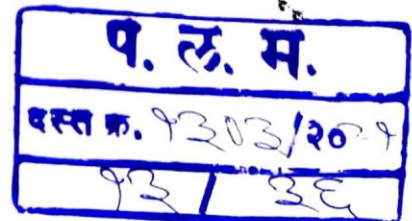 प. ल. म.
दस्त क्र. १३०३/२०११
१३ / ३६